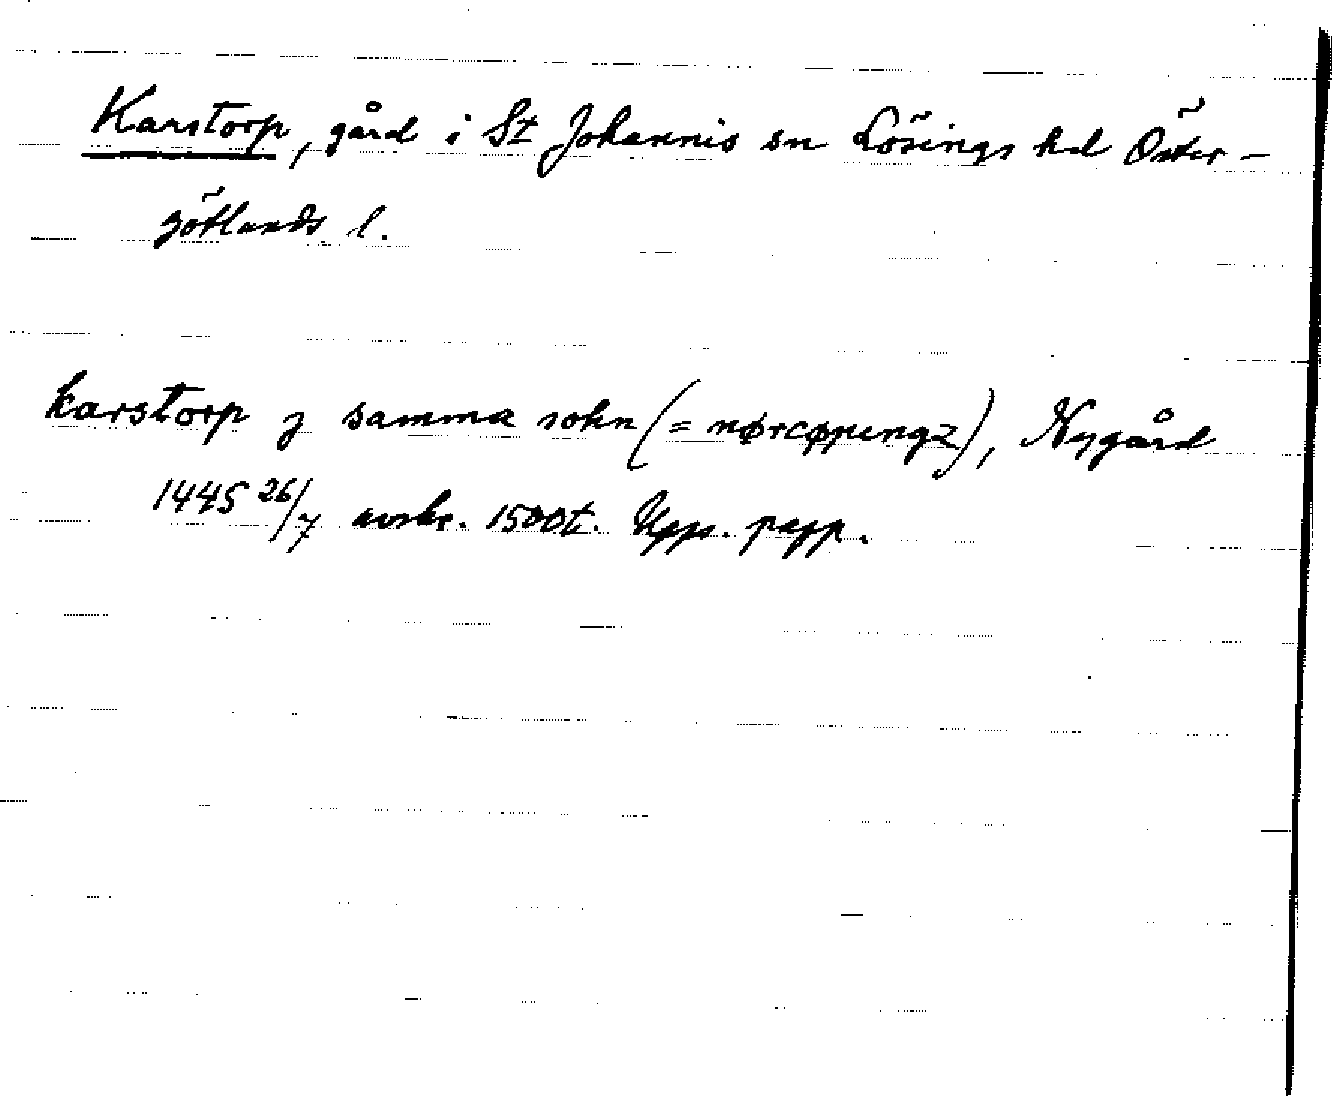 Karstorp, gård i St Johannis sn Lösings hd Öster-
götlands l.
karstorp j samma sokn (= nørcøpungz), Nygård
1445 26/7 avskr. 1500t. Upps. papp.